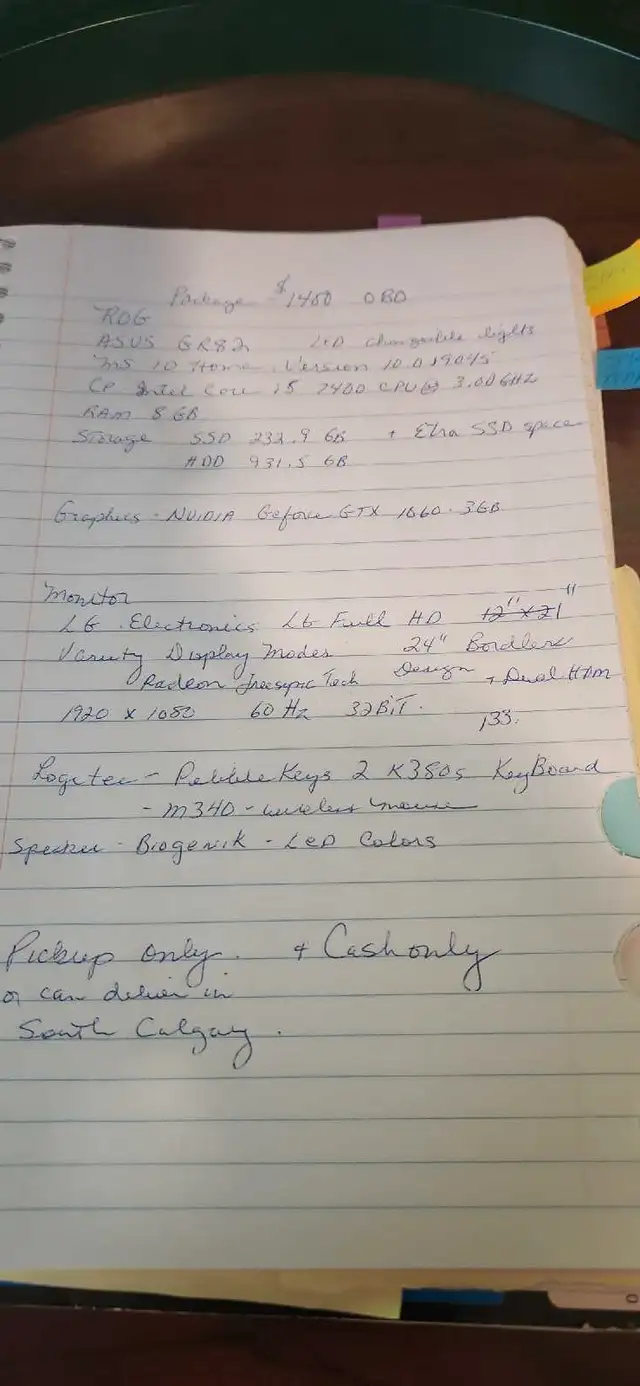 Package $1400 OBO
ROG
ASUS GR82 LED changeable lights
MS 10 Home. Version 10.0.19045
CP Intel Core i5 7400 CPU@ 3.00GHZ
RAM 8 GB
Storage SSD 232.9 GB + Etra SSD space
HDD 931.5 GB
Graphics - NVIDIA Geforce GTX 1060. 3GB
Monitor
LG. Electronics LG Full HD 12" x 21"
Variety Display Modes 24" Bordless
Radeon Freesync Tech Design + Dual HDMI
1920 x 1080 60 Hz 32BiT. 133.
Logitec - Pebble Keys 2 K380s KeyBoard
- M340 - wireless mouse
Speaker - Biogenik - LED Colors
Pickup only. + Cash only
or can deliver in
South Calgary.